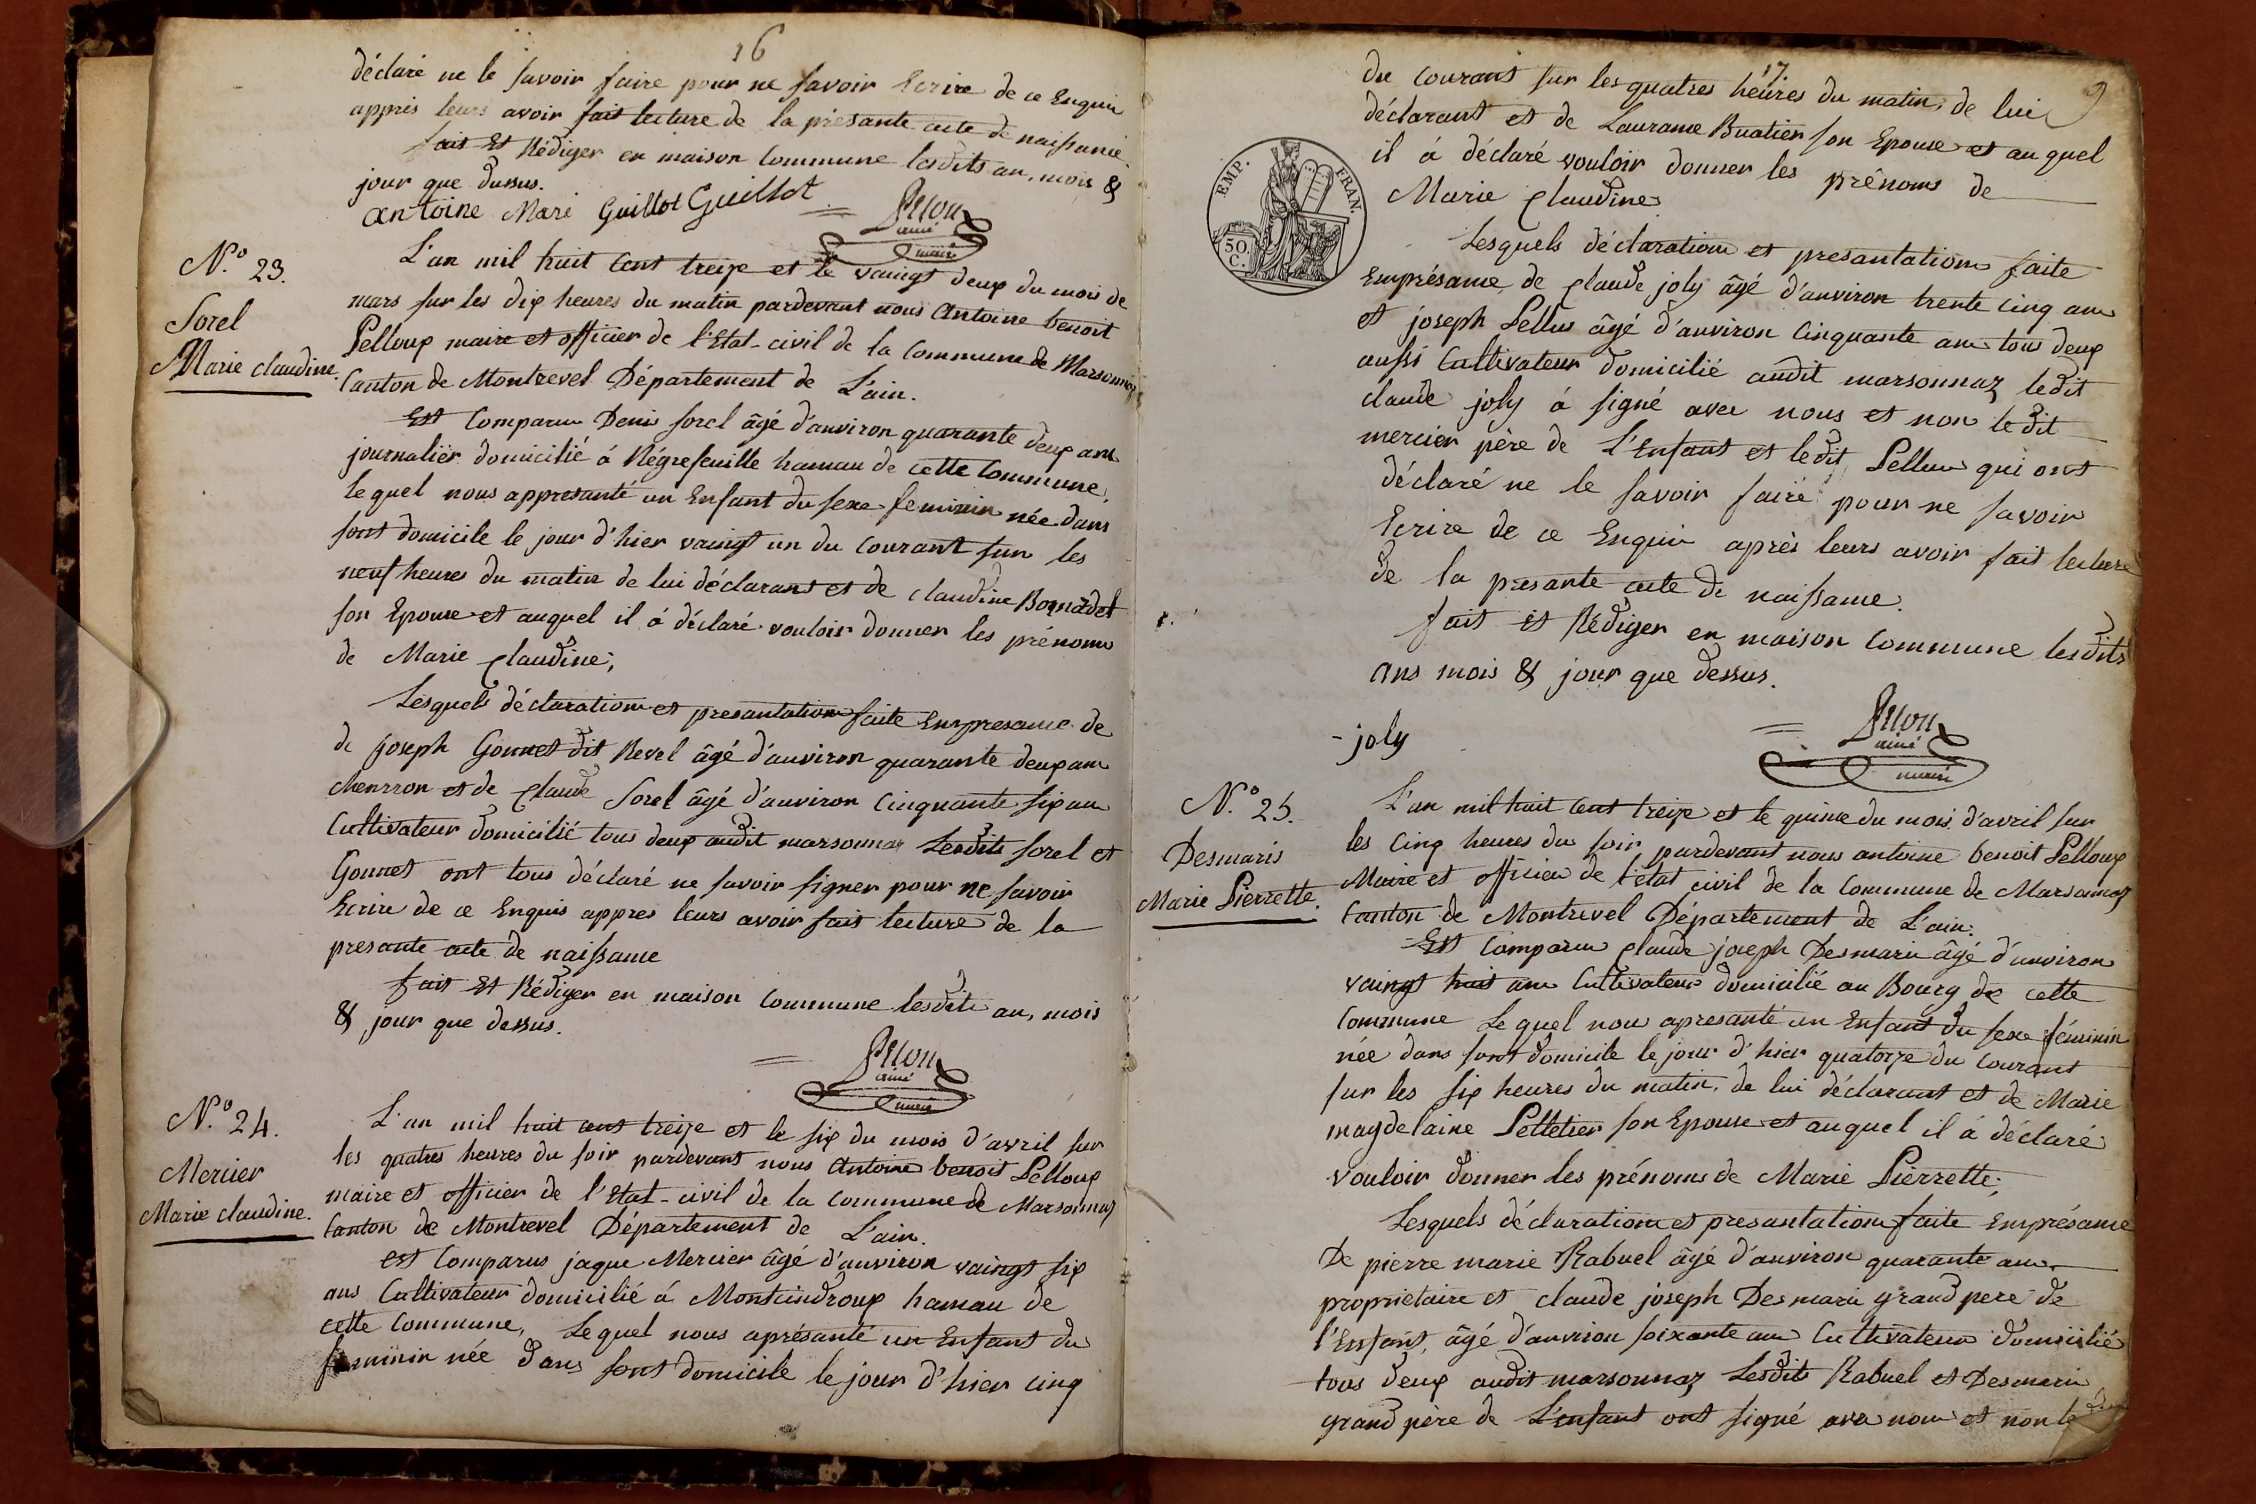 16
déclaré ne le savoir faire pour ne savoir Ecrire de ce Enquin
appris leurs avoir fait lecture de la présante acte de naissance.
fait Et Rédiger en maison Commune lesdits an, mois &
jour que dessus.
antoine Mari Guillot Guillot
ainé
maire
N.º 23.
Sorel
Marie claudine.
L'an mil huit Cent treize et le vaingt deux du mois de
mars sur les dix heures du matin pardevant nous Antoine benoit
Pelloux maire et officier de l'Etat-civil de la Commune de Marsonnaz
Canton de Montrevel Département de L'ain.
Est Comparu Denis Sorel âgé d'anviron quarante deux ans
journalier domicilié á Négrefeuille hamau de cette Commune,
lequel nous appresanté un Enfant du sexe feminin née dans
sont domicile le jour d'hier vaingt un du Courant sur les
neuf heures du matin de lui déclarant et de claudine
son Epouse et auquel il á déclaré vouloir donner les prénoms
de Marie claudine;
Lesquels déclaration et presantation faite Empresance de
de joseph Gonnet dit Revel âgé d'anviron quarante deux ans
et de claude Sorel âgé d'anviron Cinquante six ans
Cultivateur domicilié tous deux audit marsonnaz Lesdits Sorel et
Gonnet ont tous déclaré ne savoir signer pour ne savoir
Ecrire de ce Enquis appres leurs avoir fait lecture de la
presante acte de naissance
fait Et Rédiger en maison Commune lesdits an, mois
& jour que dessus.
ainé
maire
N.º 24.
Mercier
Marie claudine.
L'an mil huit cent treize et le six du mois d'avril sur
les quatres heures du soir pardevant nous Antoine benoit Pelloux
maire et officier de l'Etat-civil de la Commune de Marsonnaz
Canton de Montrevel Département de L'ain.
est Comparus jaque Mercier âgé d'anviron vaingt six
ans Cultivateur domicilié á Montcindroux hamau de
cette Commune, Lequel nous aprésanté un Enfant du
feminin née dans sont domicile le jour d'hier cinq
17.
9
du Courant sur les quatres heures du matin, de lui
déclarant et de Laurance Buatier son Epouse et auquel
il á déclaré vouloir donner les prénoms de
Marie claudine
EMP. FRAN.
50.
C.
Lesquels déclaration et presantation faite
Emprésance de claude joly âgé d'anviron trente cinq ans
et joseph Pellus âgé d'anviron Cinquante ans tous deux
aussi Cultivateur domicilié audit marsonnaz ledit
claude joly á signé avec nous et non ledit
mercier père de L'Enfant et ledit Pellus qui ont
déclaré ne le savoir faire pour ne savoir
Ecrire de ce Enquin après leurs avoir fait lecture
de la presante acte de naissance.
fait et Rédiger en maison Commune lesdits
ans mois & jour que dessus.
joly
ainé
maire
N.º 25.
Desmaris
Marie Pierrette.
L'an mil huit Cent treize et le quinze du mois d'avril sur
les Cinq heures du soir pardevant nous antoine benoit Pelloux
Maire et officier de l'état civil de la Commune de Marsonnaz
Canton de Montrevel Département de L'ain.
Est Comparu claude joseph Desmaris âgé d'anviron
vaingt huit ans Cultivateur domicilié au Bourg de cette
Commune Lequel nous apresanté un Enfant du sexe féminin
née dans sont domicile le jour d'hier quatorze du Courant
sur les six heures du matin. de lui déclarant et de Marie
magdelaine Pelletier son Epouse et auquel il á déclaré
vouloir donner les prénoms de Marie Pierrette;
Lesquels déclaration et presantation faite Emprésance
De pierre marie Rabuel âgé d'anviron quarante ans
propriétaire et claude joseph Desmaris grand pere de
l'Enfant, âgé d'anviron soixante ans Cultivateur domicilié
tous deux audit marsonnaz Lesdits Rabuel et Desmaris
grand père de L'enfant ont signé avec nous et non le